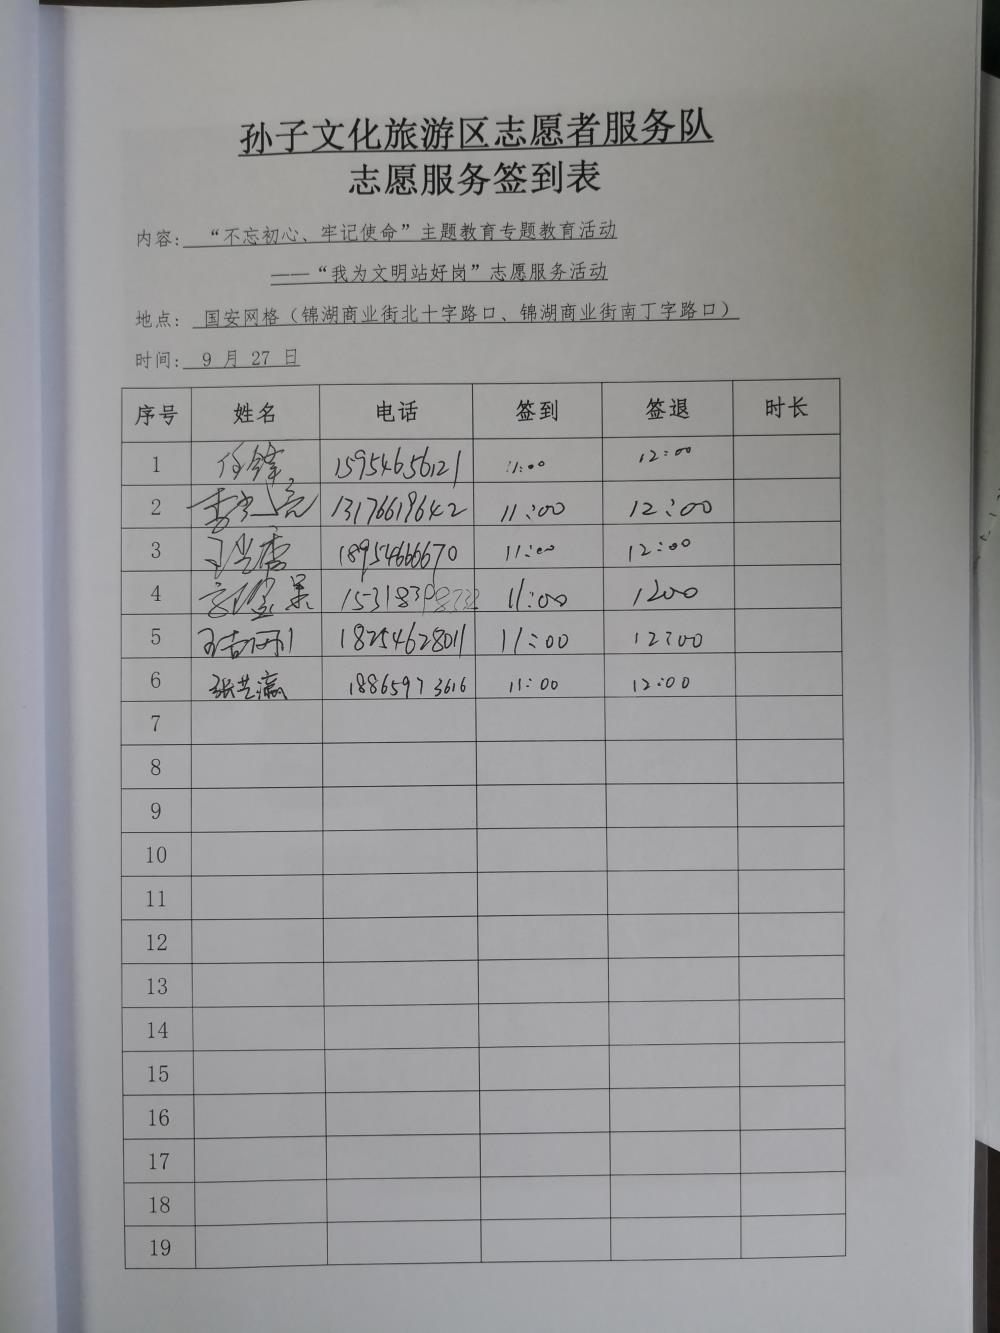 孙子文化旅游区志愿者服务队
志愿服务签到表
内容: “不忘初心、牢记使命”主题教育专题教育活动
——“我为文明站好岗”志愿服务活动
地点: 国安网格（锦湖商业街北十字路口、锦湖商业街南丁字路口）
时间: 9 月 27 日
序号 姓名 电话 签到 签退 时长
1 任锋 15954656121 11:00 12:00
2 13176619642 11:00 12:00
3 18954666670 11:00 12:00
4 11:00 1200
5 18254628011 11:00 12:00
6 张艺瀛 18865973616 11:00 12:00
7
8
9
10
11
12
13
14
15
16
17
18
19